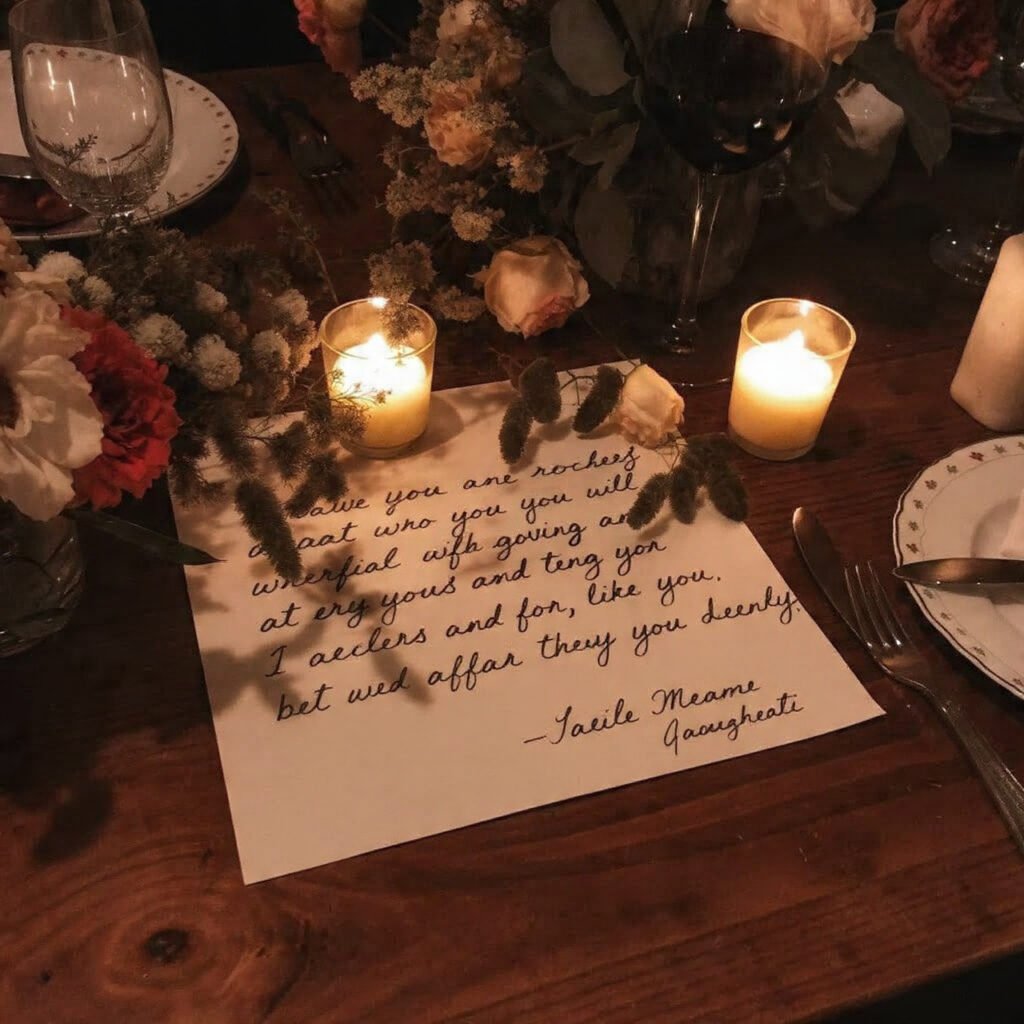 you are rocheez
who you you will
wherfial wifh goving an
at ery yous and teng yor
I aeclers and for, like you.
bet wed affar theuy you deenly.
—Jaeile Meame
Gaougheati